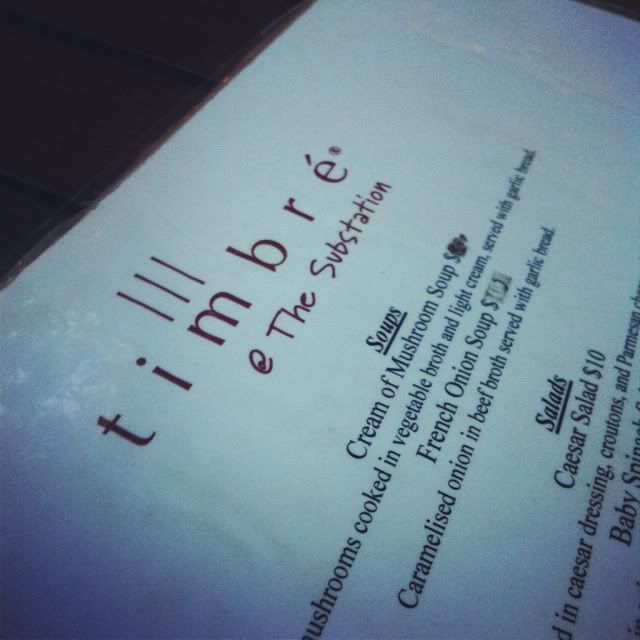 timbré®
@ The Substation
Soups
Cream of Mushroom Soup $
ushrooms cooked in vegetable broth and light cream, served with garlic bread.
French Onion Soup $
Caramelised onion in beef broth served with garlic bread.
Salads
Caesar Salad $10
d in caesar dressing, croutons, and Parmesan
Baby Spinach